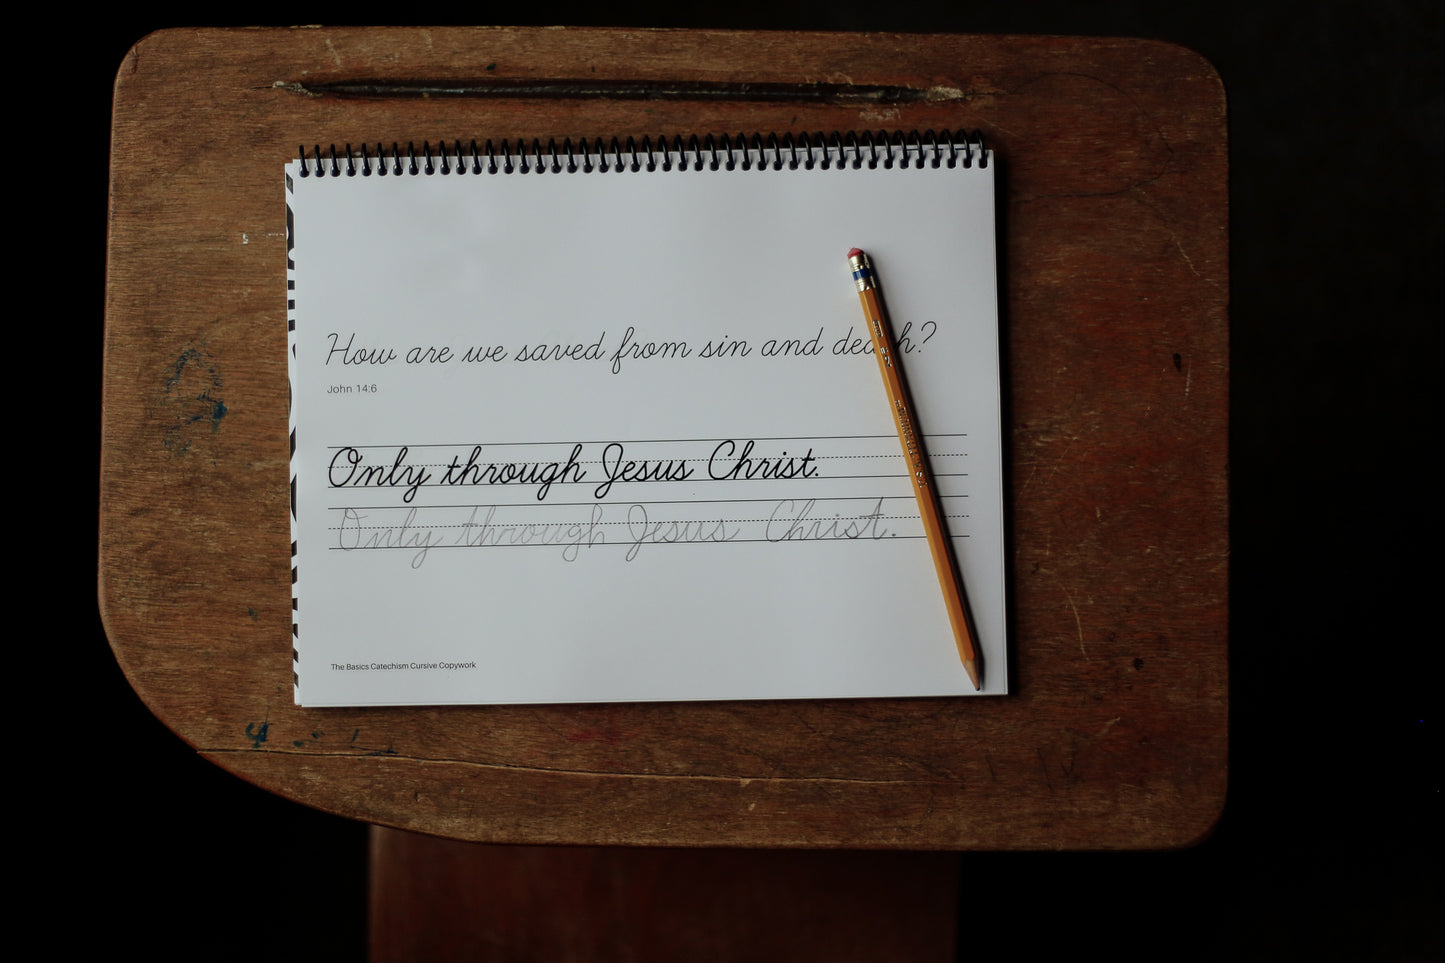 How are we saved from sin and death?
John 14:6
Only through Jesus Christ.
Only through Jesus Christ.
The Basics Catechism Cursive Copywork